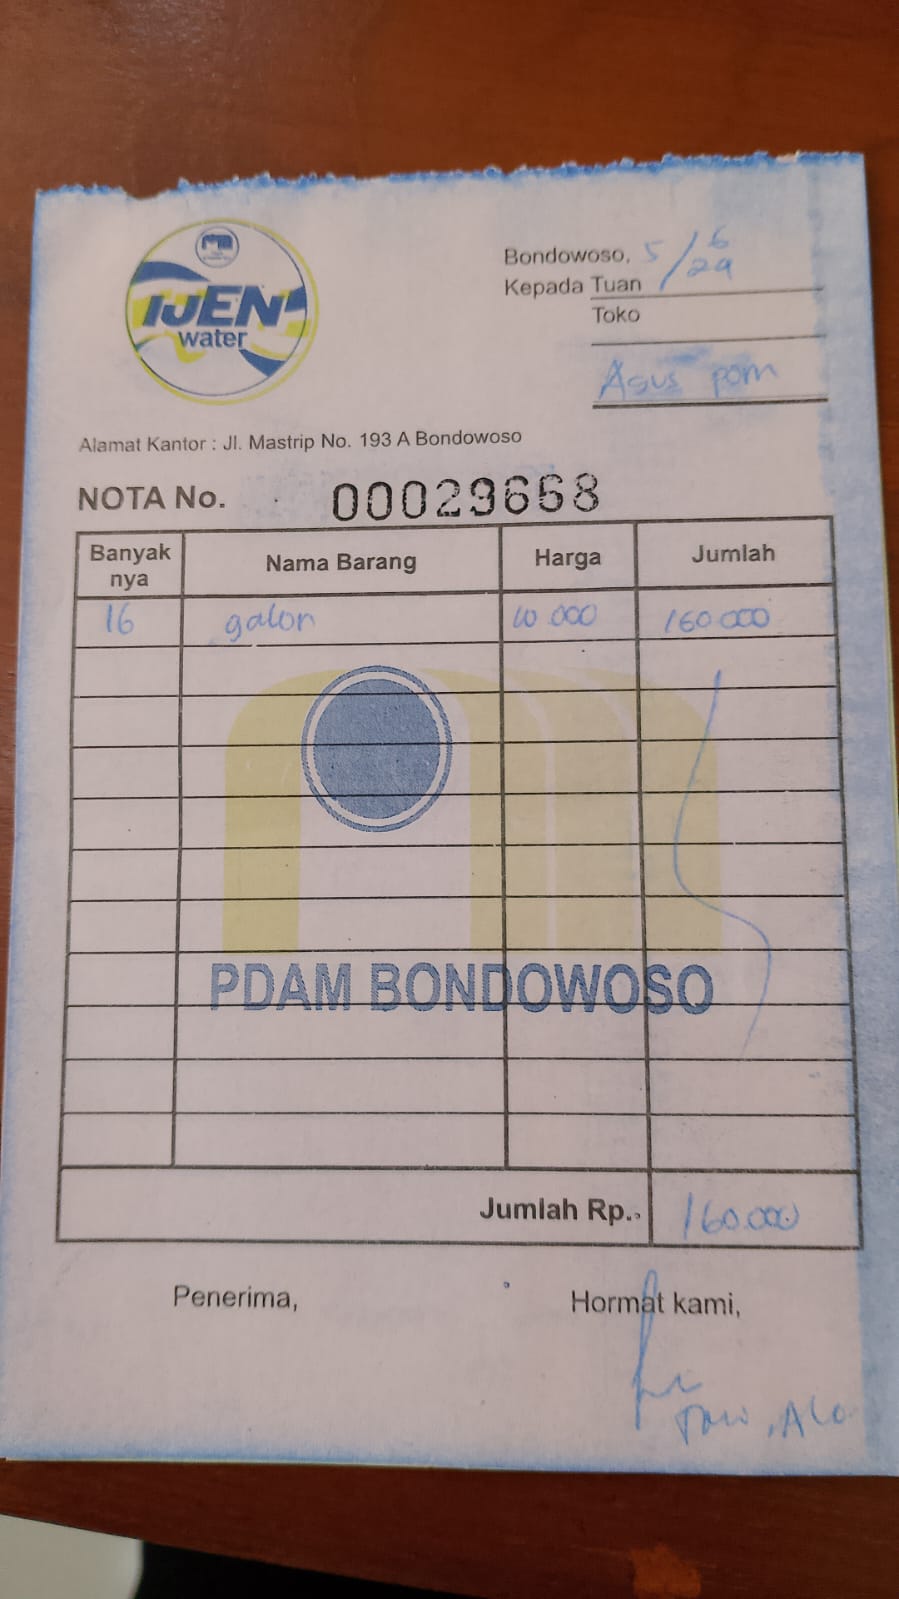 IJEN
water
Bondowoso, 5/6
24
Kepada Tuan
Toko
Agus pom
Alamat Kantor : Jl. Mastrip No. 193 A Bondowoso
NOTA No. 00029668
Banyak nya Nama Barang Harga Jumlah
16 galon 10.000 160.000
PDAM BONDOWOSO
Jumlah Rp. 160.000
Penerima, Hormat kami,